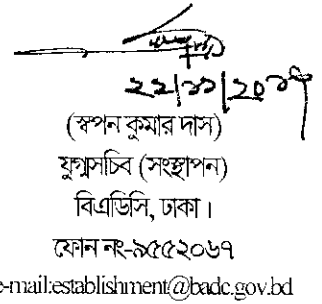 ২২|১১|২০১৮
(স্বপন কুমার দাস)
যুগ্মসচিব (সংস্থাপন)
বিএডিসি, ঢাকা।
ফোন নং-৯৫৫২০৬৭
e-mail:establishment@badc.gov.bd